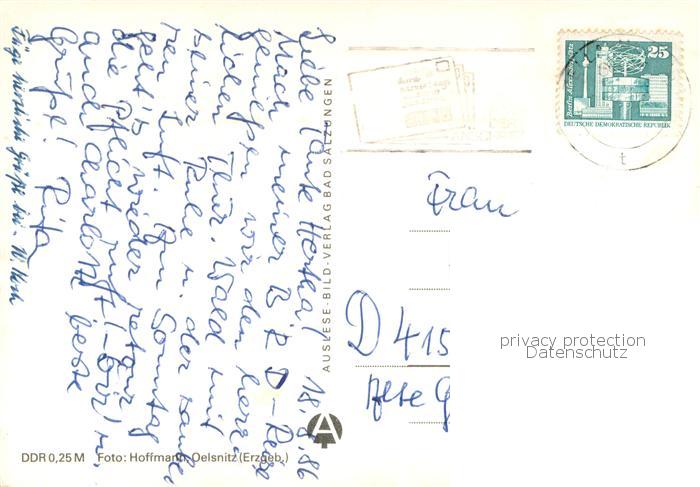 18.8.86
Liebe Tante Hertha!
Nach meiner BRD-Reise
genießen wir den herr-
lichen Thür. Wald mit
seiner Ruhe u. der saube-
ren Luft. Am Sonntag
geht's wieder retour
die Pflicht ruft! – Dir u.
auch Charlotte beste
Grüße! Rita
Füge herzliche Grüße bei
AUSLESE-BILD-VERLAG BAD SALZUNGEN
Berlin, Alexanderplatz
25
DEUTSCHE DEMOKRATISCHE REPUBLIK
t
Frau
D 415
Alte G
privacy protection
Datenschutz
A
DDR 0,25 M Foto: Hoffmann, Oelsnitz (Erzgeb.)